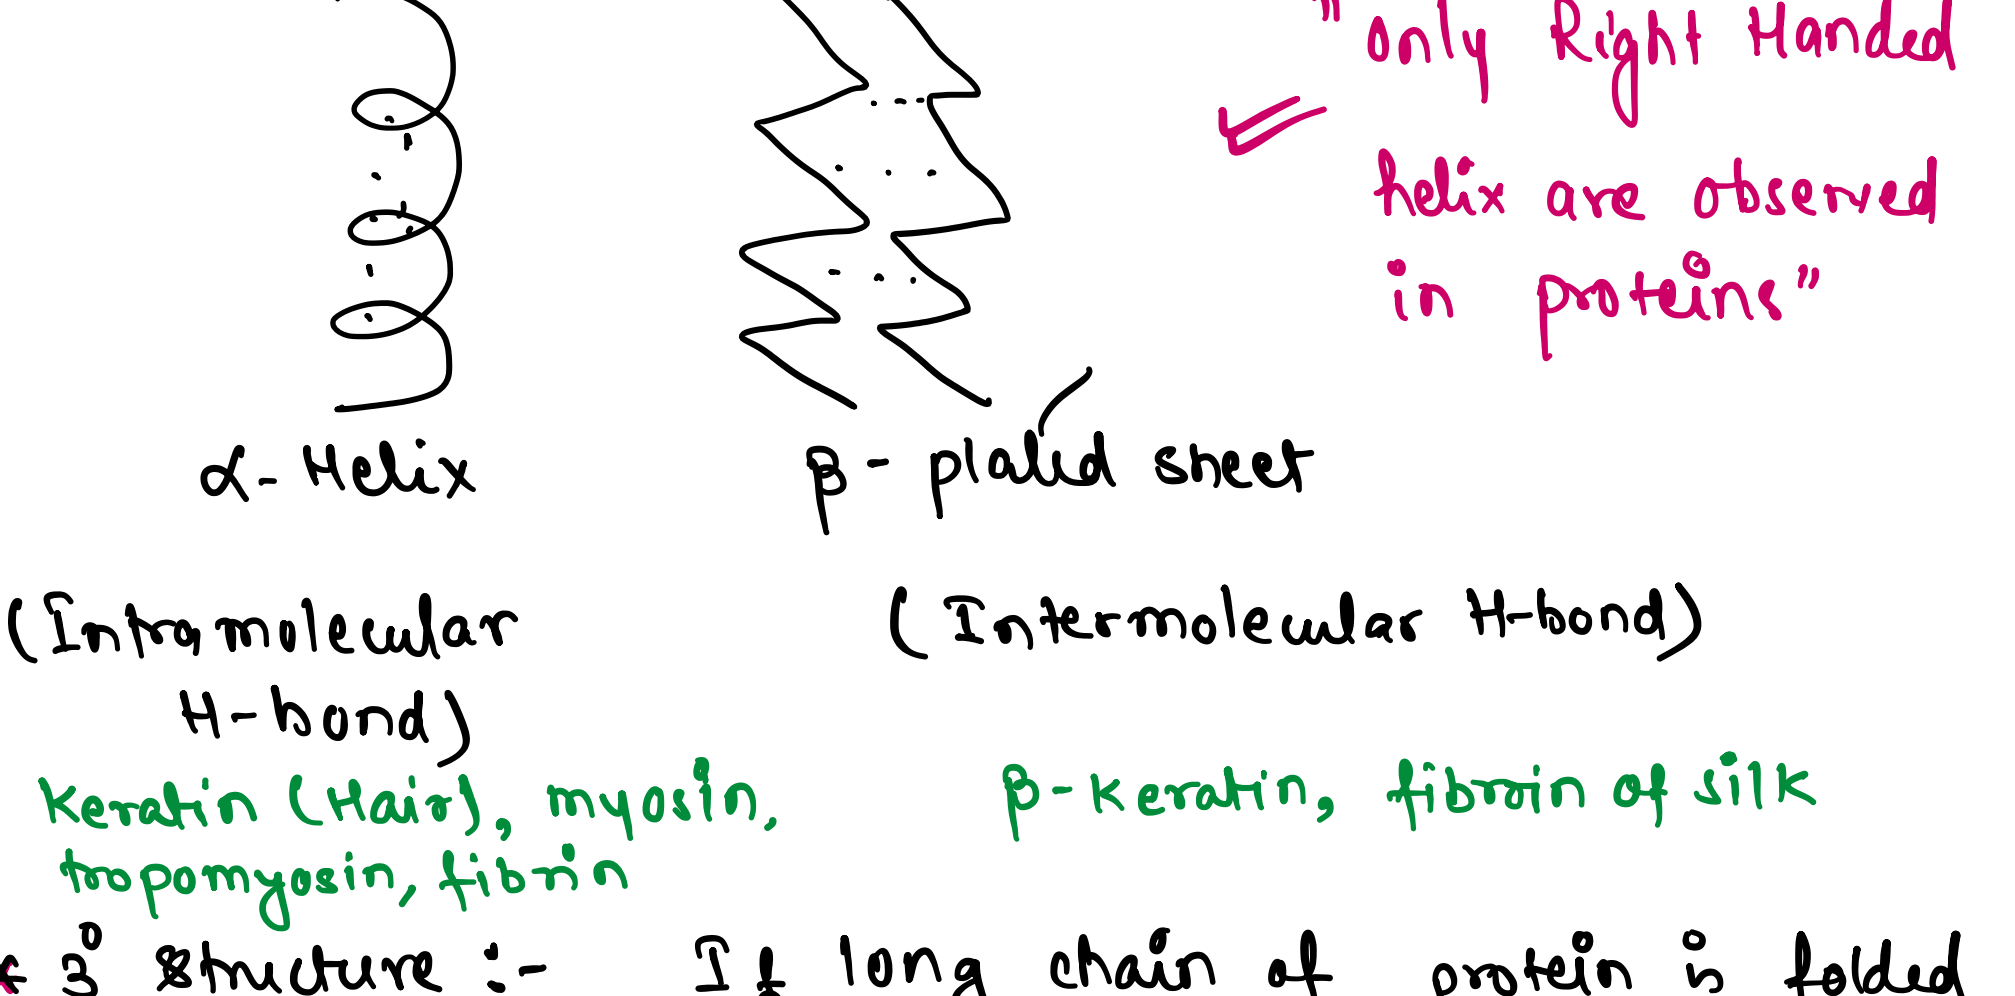 "only Right Handed
helix are observed
in proteins"
α-Helix
β-plated sheet
(Intramolecular
H-bond)
(Intermolecular H-bond)
Keratin (Hair), myosin,
tropomyosin, fibrin
β-keratin, fibroin of silk
* 3° structure :- If long chain of protein is folded